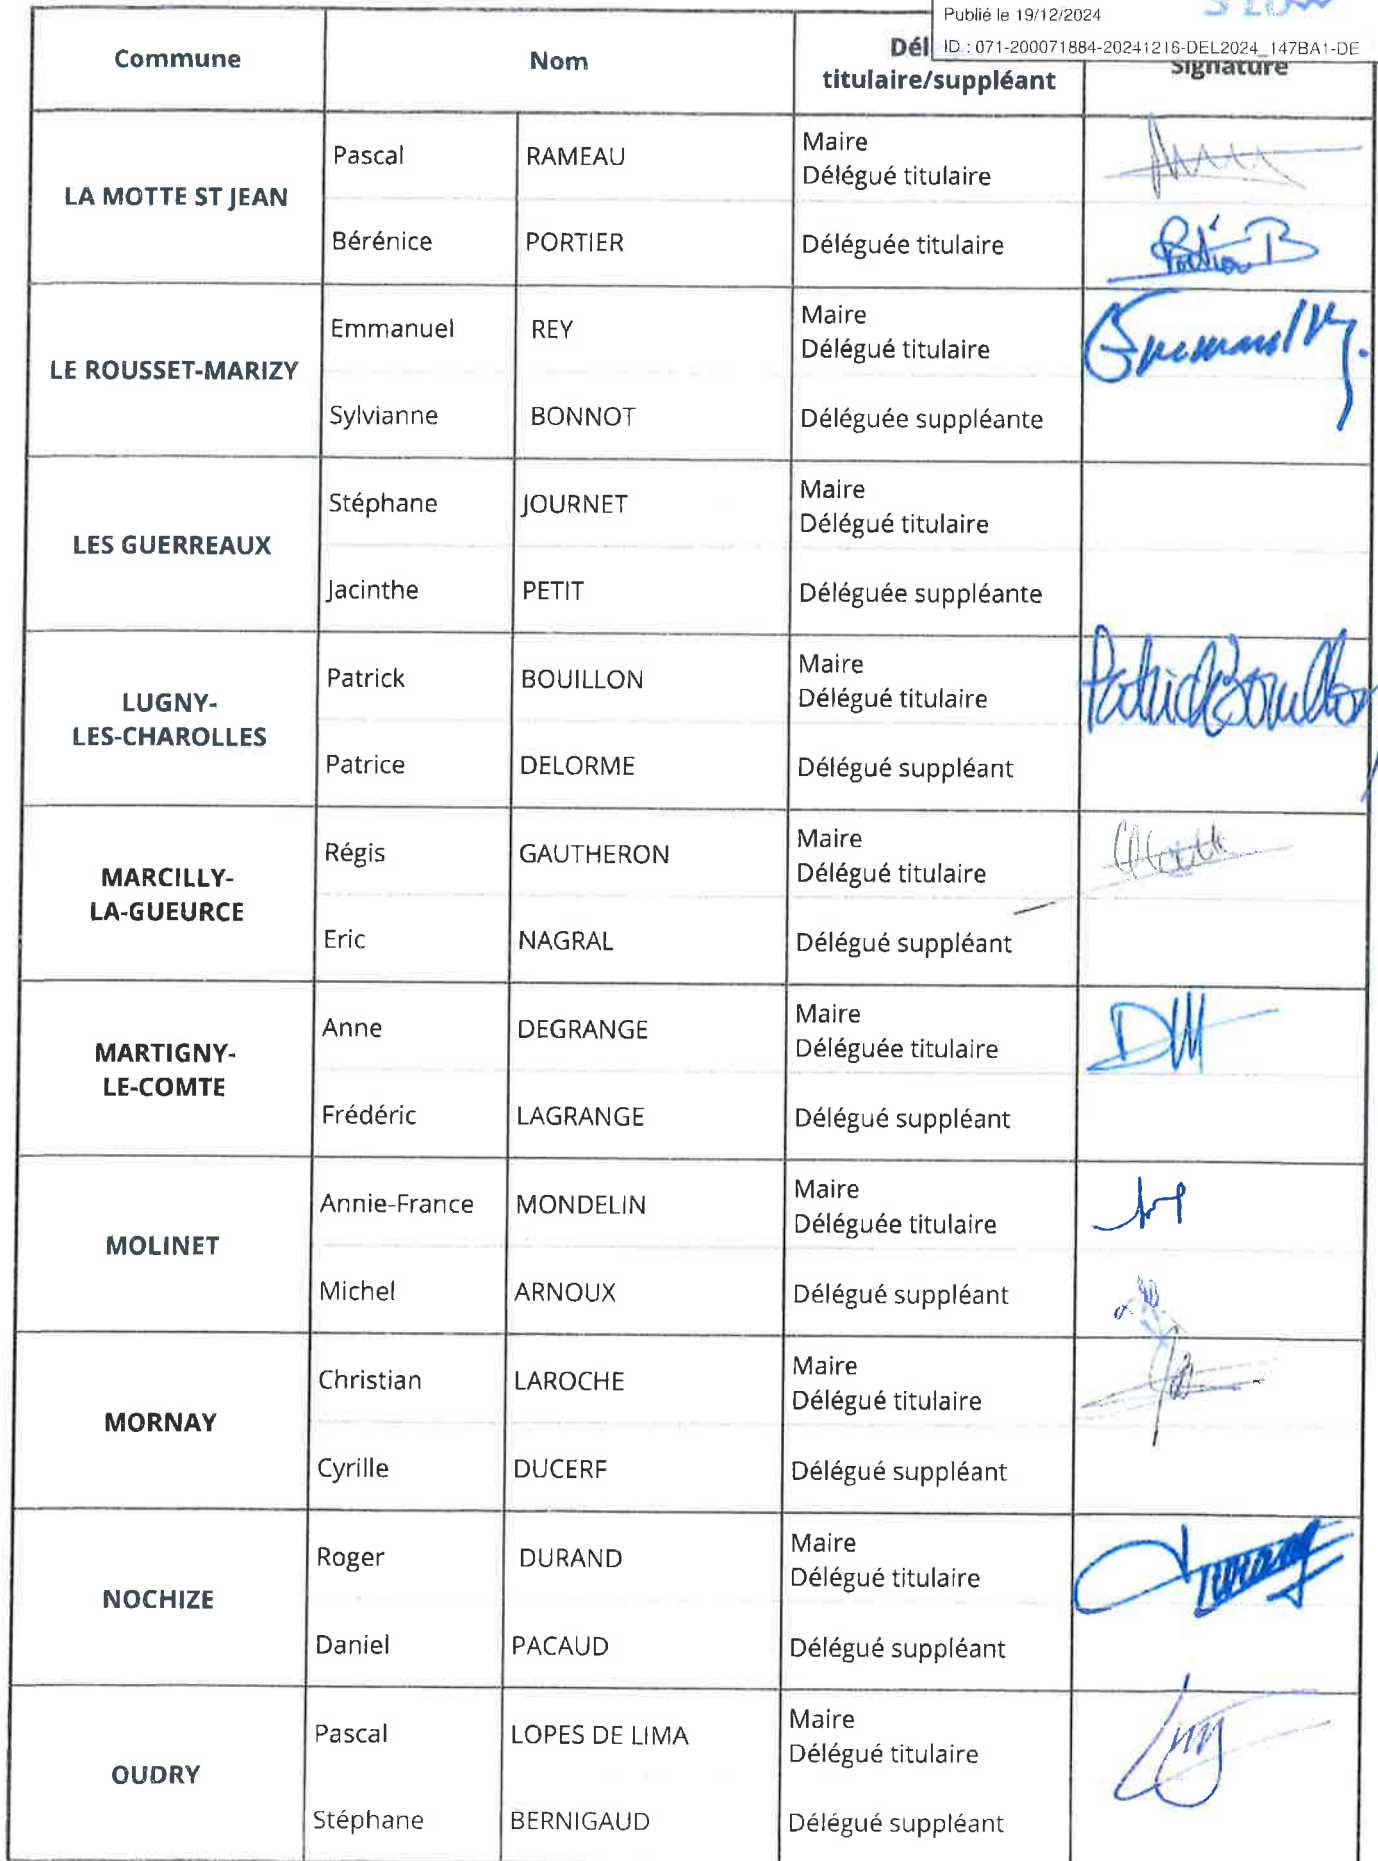 Publié le 19/12/2024
ID : 071-200071884-20241216-DEL2024_147BA1-DE
Commune Nom Dél
titulaire/suppléant Signature
LA MOTTE ST JEAN
Pascal RAMEAU Maire
Délégué titulaire
Bérénice PORTIER Déléguée titulaire
Portier B
LE ROUSSET-MARIZY
Emmanuel REY Maire
Délégué titulaire
Sylvianne BONNOT Déléguée suppléante
LES GUERREAUX
Stéphane JOURNET Maire
Délégué titulaire
Jacinthe PETIT Déléguée suppléante
LUGNY-
LES-CHAROLLES
Patrick BOUILLON Maire
Délégué titulaire
Patrick Bouillon
Patrice DELORME Délégué suppléant
MARCILLY-
LA-GUEURCE
Régis GAUTHERON Maire
Délégué titulaire
Eric NAGRAL Délégué suppléant
MARTIGNY-
LE-COMTE
Anne DEGRANGE Maire
Déléguée titulaire
Frédéric LAGRANGE Délégué suppléant
MOLINET
Annie-France MONDELIN Maire
Déléguée titulaire
Michel ARNOUX Délégué suppléant
MORNAY
Christian LAROCHE Maire
Délégué titulaire
Cyrille DUCERF Délégué suppléant
NOCHIZE
Roger DURAND Maire
Délégué titulaire
Daniel PACAUD Délégué suppléant
OUDRY
Pascal LOPES DE LIMA Maire
Délégué titulaire
Stéphane BERNIGAUD Délégué suppléant